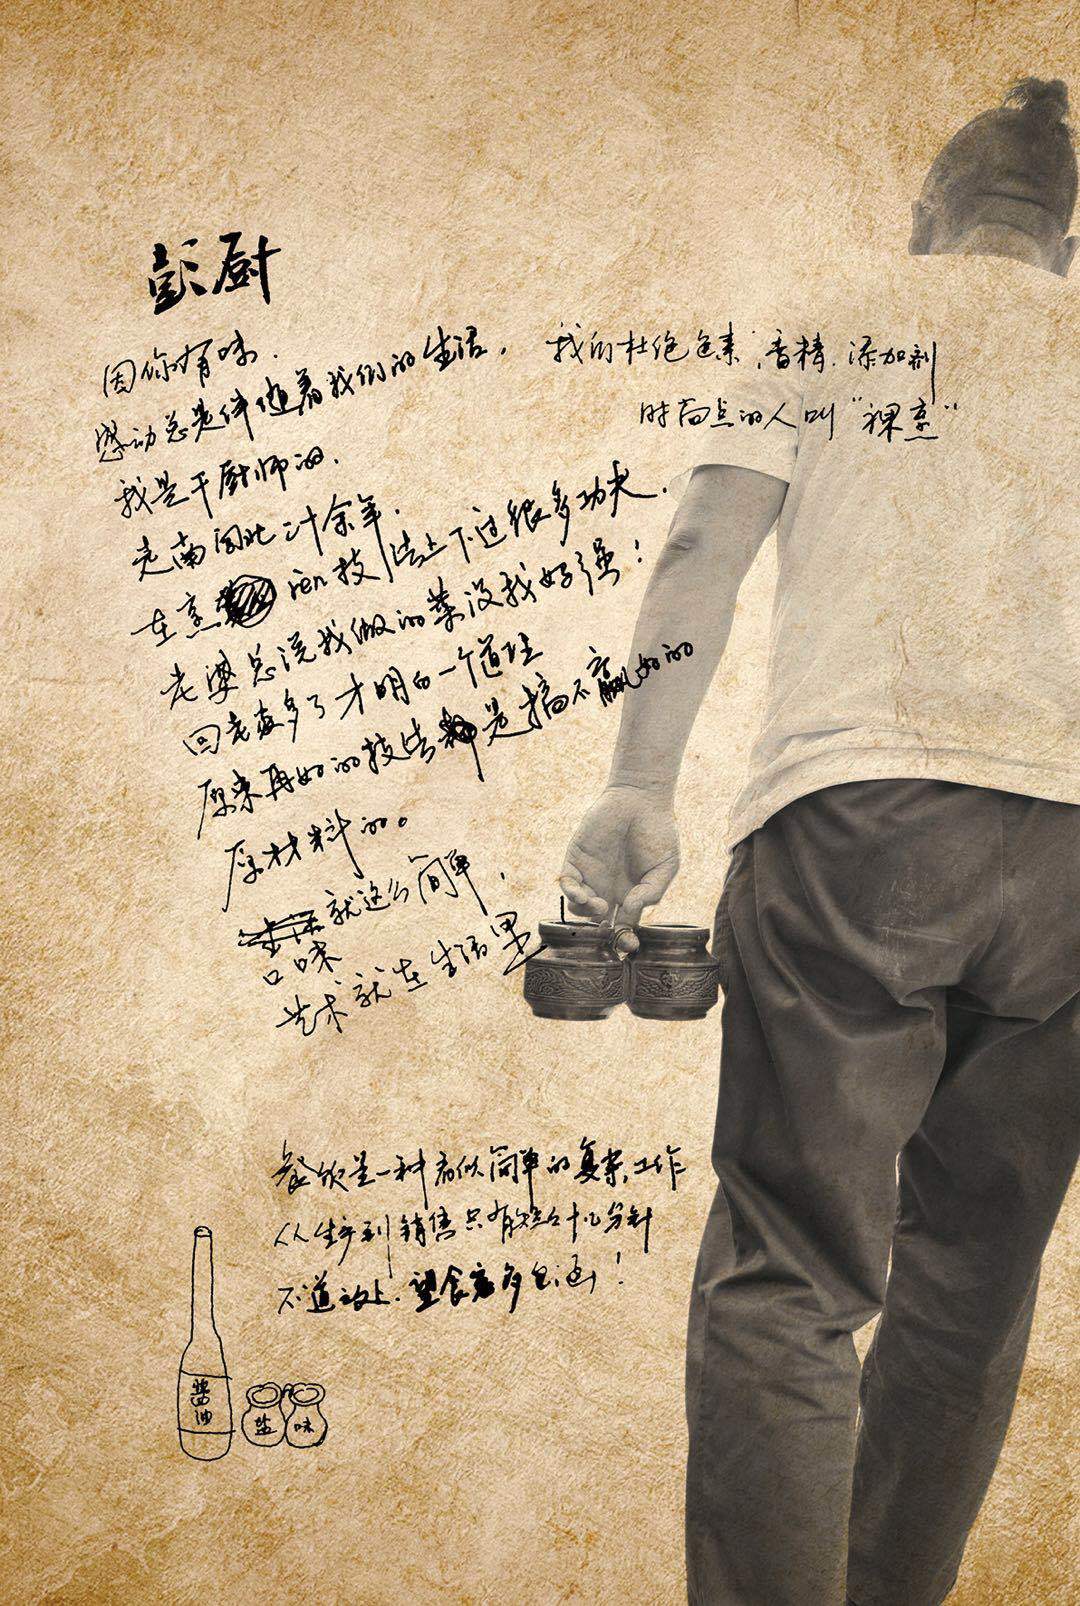 彭厨
因你有味.
感动总是伴随着我们的生活,
我是干厨师的,
走南闯北二十余年,
在烹 rèn技法上下过很多功夫.
老婆总说我做的菜没我好强!
回老家多了才明白一个道理
原来再好的技法 是搞不赢好的
原材料的。
就这么简单,
口味
艺术就在生活里
我们杜绝色素,香精.添加剂
时尚点的人叫"裸烹"
餐饮是一种看似简单的复杂工作
从生产到销售只有短短十几分钟
不道之处.望食客多包涵!
酱油
盐
味